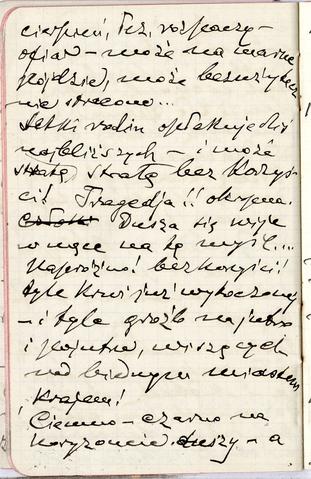 cierpień, łez, rozpaczy –
ofiar – może na marne
pójdzie, może bezużytecz
nie stracone...
Setki rodzin opłakuje dziś
najbliższych – i może
stratę bez korzyś
ci! Tragedja!! okropna.
Dusza się wije
w męce na tę myśl....
Napróżno! bez korzyści!
tyle krwi już wytoczonej
– i tyle gróźb na jutro
i pojutro, wiszących
nad biednym miastem
, Krajem!
Ciemno – czarno na
horyzoncie duszy – a